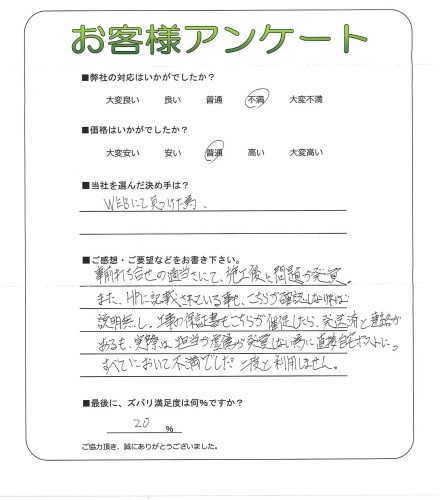 お客様アンケート
■弊社の対応はいかがでしたか?
大変良い 良い 普通 不満 大変不満
■価格はいかがでしたか?
大変安い 安い 普通 高い 大変高い
■当社を選んだ決め手は?
WEBにて見つけた為。
■ご感想・ご要望などをお書き下さい。
事前打ち合せの適当さにて、施工後に問題が発覚。
また、HPに記載されている事も、こちらが確認しなければ
説明無し。工事の保証書もこちらが催促したら、発送済と連絡が
あるも、実際は、担当の 発覚しない為に直接自宅ポストに。
すべてにおいて不満でした。二度と利用しません。
■最後に、ズバリ満足度は何%ですか?
20 %
ご協力頂き、誠にありがとうございました。